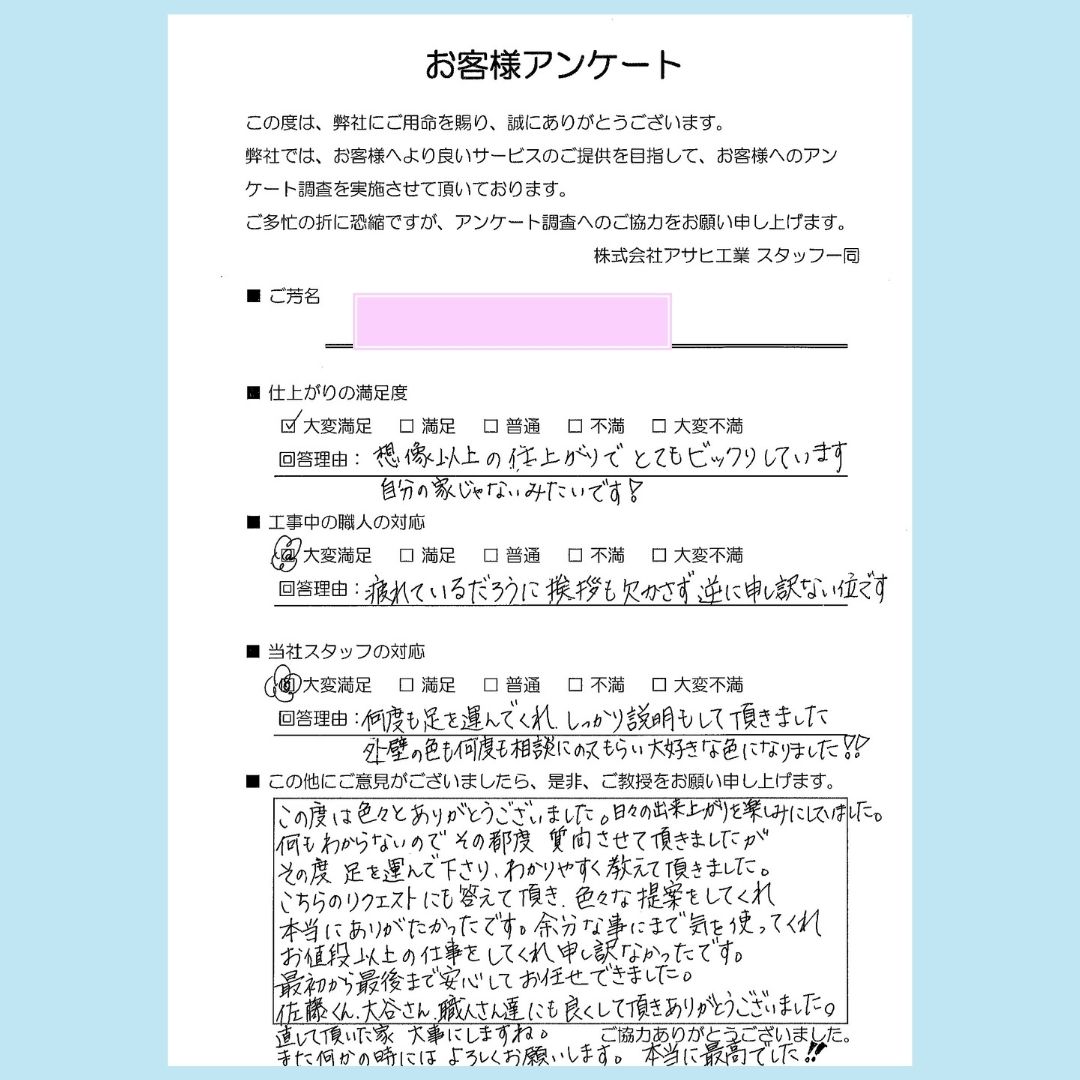 お客様アンケート
この度は、弊社にご用命を賜り、誠にありがとうございます。
弊社では、お客様へより良いサービスのご提供を目指して、お客様へのアン
ケート調査を実施させて頂いております。
ご多忙の折に恐縮ですが、アンケート調査へのご協力をお願い申し上げます。
株式会社アサヒ工業 スタッフ一同
■ ご芳名
■ 仕上がりの満足度
☑ 大変満足 □ 満足 □ 普通 □ 不満 □ 大変不満
回答理由：想像以上の仕上がりでとてもビックリしています
自分の家じゃないみたいです！
■ 工事中の職人の対応
□ 大変満足 □ 満足 □ 普通 □ 不満 □ 大変不満
回答理由：疲れているだろうに挨拶も欠かさず逆に申し訳ない位です
■ 当社スタッフの対応
□ 大変満足 □ 満足 □ 普通 □ 不満 □ 大変不満
回答理由：何度も足を運んでくれ、しっかり説明もして頂きました
外壁の色も何度も相談にのってもらい大好きな色になりました!!
■ この他にご意見がございましたら、是非、ご教授をお願い申し上げます。
この度は色々とありがとうございました。日々の出来上がりを楽しみにしていました。
何もわからないのでその都度 質問させて頂きましたが
その度 足を運んで下さり、わかりやすく教えて頂きました。
こちらのリクエストにも答えて頂き、色々な提案をしてくれ
本当にありがたかったです。余分な事にまで気を使ってくれ
お値段以上の仕事をしてくれ申し訳なかったです。
最初から最後まで安心してお任せできました。
佐藤くん、大谷さん、職人さん達にも良くして頂きありがとうございました。
直して頂いた家 大事にしますね。 ご協力ありがとうございました。
また何かの時には よろしくお願いします。 本当に最高でした!!